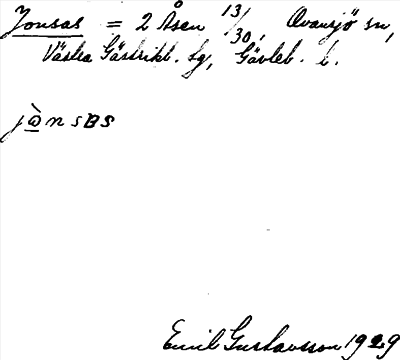 Jonsas = 2 Åsen 13/30, Ovansjö sn,
Västra Gästrikl. tg, Gävleb. l.
jò̲nsBs
Emil Gustavsson 1929